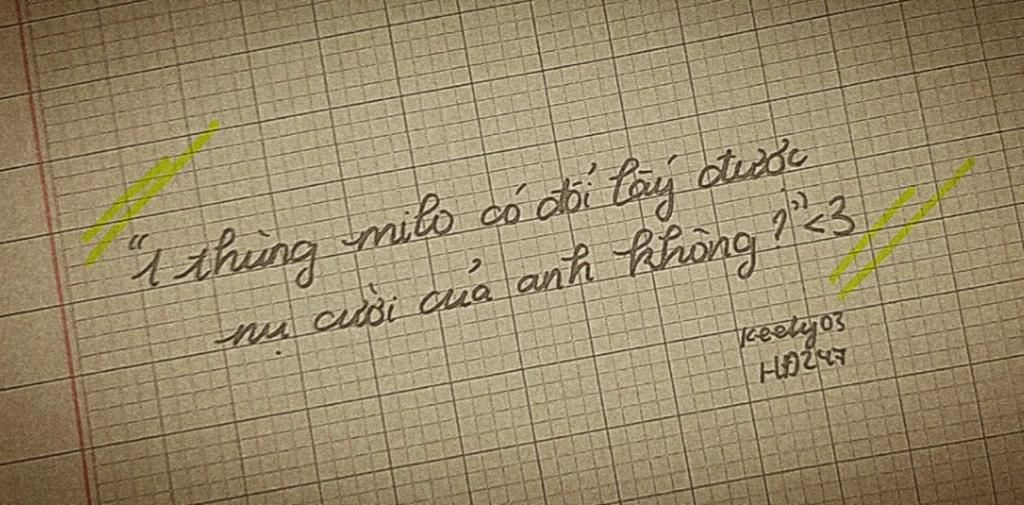 "1 thùng milo có đổi lấy được
nụ cười của anh không ?" <3
Keely03
HD247